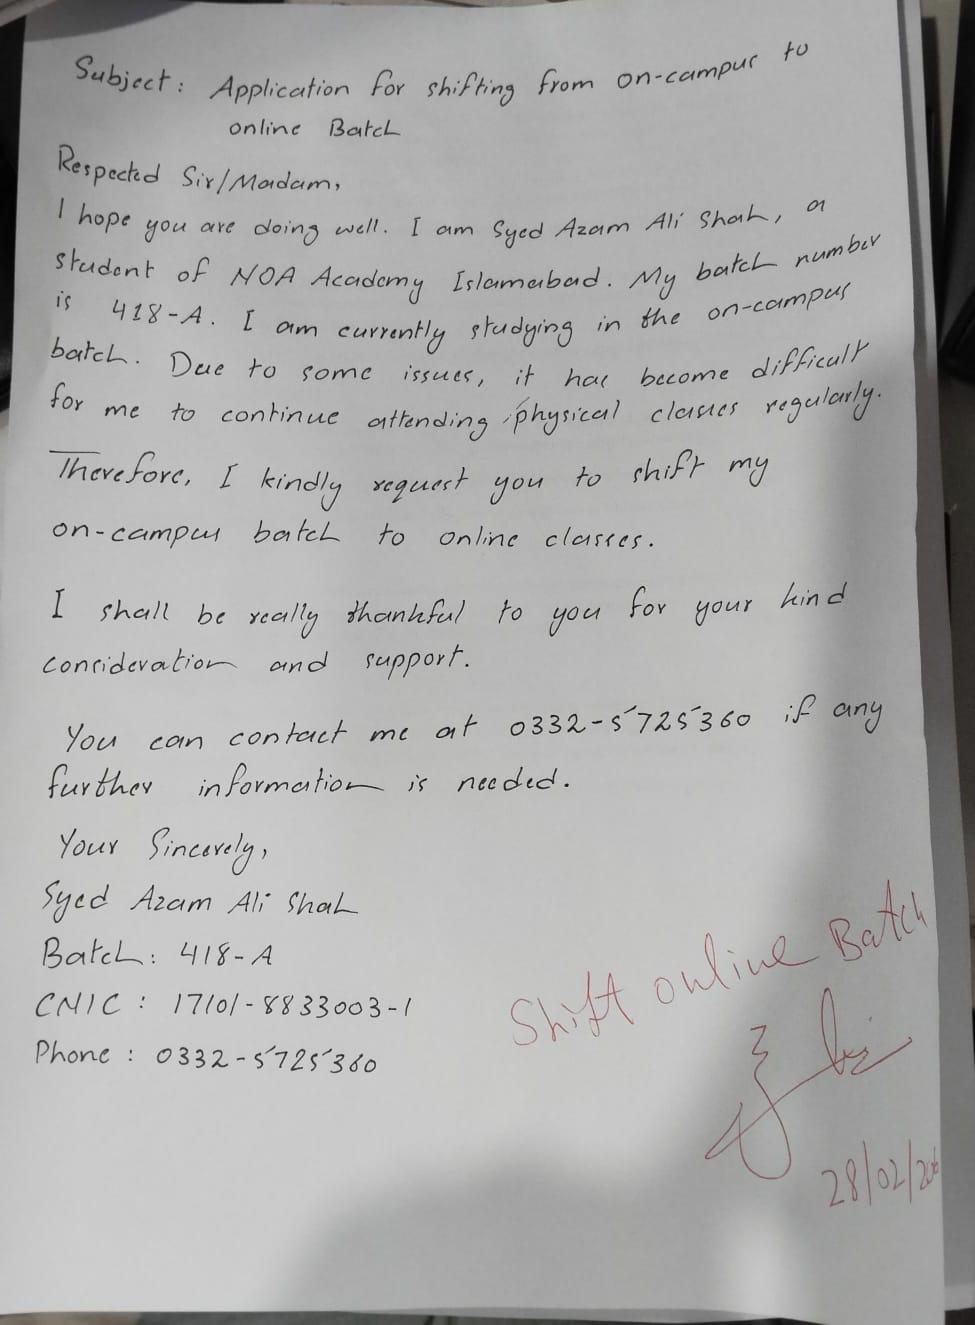 Subject: Application for shifting from on-campus to
online Batch
Respected Sir/Madam,
I hope you are doing well. I am Syed Azam Ali Shah, a
student of NOA Academy Islamabad. My batch number
is 418-A. I am currently studying in the on-campus
batch. Due to some issues, it has become difficult
for me to continue attending physical classes regularly.
Therefore, I kindly request you to shift my
on-campus batch to online classes.
I shall be really thankful to you for your kind
consideration and support.
You can contact me at 0332-5725360 if any
further information is needed.
Your Sincerely,
Syed Azam Ali Shah
Batch: 418-A
CNIC: 17101-8833003-1
Phone: 0332-5725360
Shift online Batch
28/02/